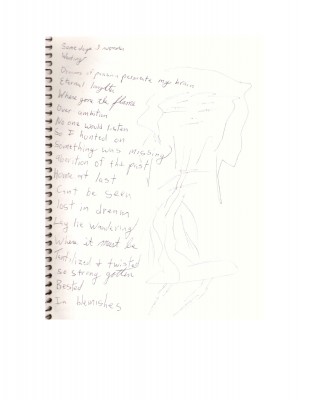 Some days I wonder
Dreams of passion penetrate my brain
Eternal laughter
Where gone the flame
Over ambition
No one would listen
So I hunted on
Something was missing
of the past
Home at last
Can't be seen
lost in dream
lie wandering
Where it must be
+ twisted
so strong gotten
Bested
In blemishes